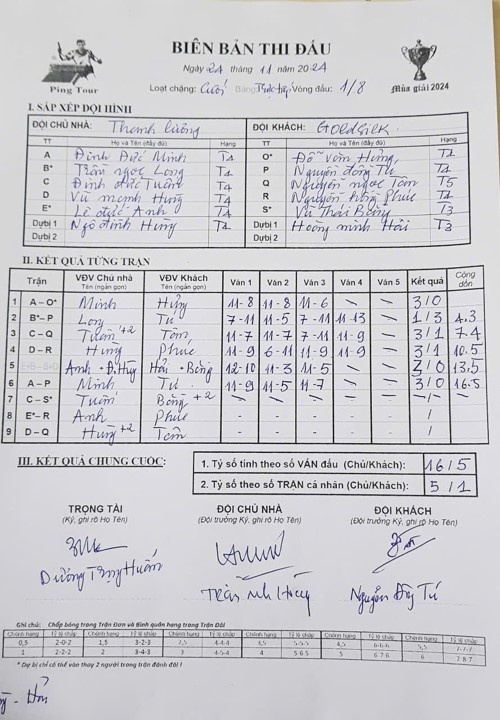 BIÊN BẢN THI ĐẤU
Ngày 24 tháng 11 năm 2024
Ping Tour
Loạt chặng: Cuối Bảng: Vòng đấu: 1/8
Mùa giải 2024
I. SẮP XẾP ĐỘI HÌNH
ĐỘI CHỦ NHÀ: Thanh Lương ĐỘI KHÁCH: GOLDSILK
TT Họ và Tên (đầy đủ) Hạng TT Họ và Tên (đầy đủ) Hạng
A Đinh Đức Minh T4 O* Đỗ Văn Hưng T4
B* Trần Ngọc Long T4 P Nguyễn Đông Tư T4
C Đinh Đức Tuấn T4 Q Nguyễn Ngọc Tân T5
D Vũ Mạnh Hưng T4 R Nguyễn Hồng Phúc T4
E* Lê Đức Anh T4 S* Vũ Thái Bông T3
Dự bị 1 Ngô Đình Hưng T4 Dự bị 1 Hoàng Minh Hải T3
Dự bị 2 Dự bị 2
II. KẾT QUẢ TỪNG TRẬN
Trận VĐV Chủ nhà VĐV Khách Ván 1 Ván 2 Ván 3 Ván 4 Ván 5 Kết quả Cộng dồn
Tên (ngắn gọn) Tên (ngắn gọn)
1 A – O* Minh Hưng 11-8 11-8 11-6 3/0
2 B* – P Long Tư 7-11 11-5 7-11 11-13 1/3 4.3
3 C – Q Tuấn +2 Tân 11-7 11-7 7-11 11-9 3/1 7-4
4 D – R Hưng Phúc 11-9 6-11 11-9 11-9 3/1 10.5
5 Anh + Đ.Hưng Hải + Bông 12-10 11-3 11-5 3/0 13.5
6 A – P Minh Tư 11-9 11-5 11-7 3/0 16.5
7 C – S* Tuấn Bông +2 - / -
8 E* – R Anh Phúc - - - - - /
9 D – Q Hưng +2 Tân - - - - - /
III. KẾT QUẢ CHUNG CUỘC:
1. Tỷ số tính theo số VÁN đấu (Chủ/Khách): 16/5
2. Tỷ số theo số TRẬN cá nhân (Chủ/Khách): 5/1
TRỌNG TÀI ĐỘI CHỦ NHÀ ĐỘI KHÁCH
(Ký, ghi rõ Họ Tên) (Đội trưởng Ký, ghi rõ Họ Tên) (Đội trưởng Ký, ghi rõ Họ Tên)
Dương Huấn Trần Hùng Nguyễn Tú
Ghi chú: Chấp bóng trong Trận Đơn và Bình quân hạng trong Trận Đôi
Chênh hạng Tỷ lệ chấp Chênh hạng Tỷ lệ chấp Chênh hạng Tỷ lệ chấp
0,5 2-0-2 1,5 3-2-3 2,5 4-4-4 3,5 5-5-5 4,5 6-6-6 5,5 7-7-7
1 2-2-2 2 3-4-3 3 4-5-4 4 5-6-5 5 6-7-6 6 7-8-7
* Dự bị chỉ có thể vào thay 2 người trong trận đánh đôi !